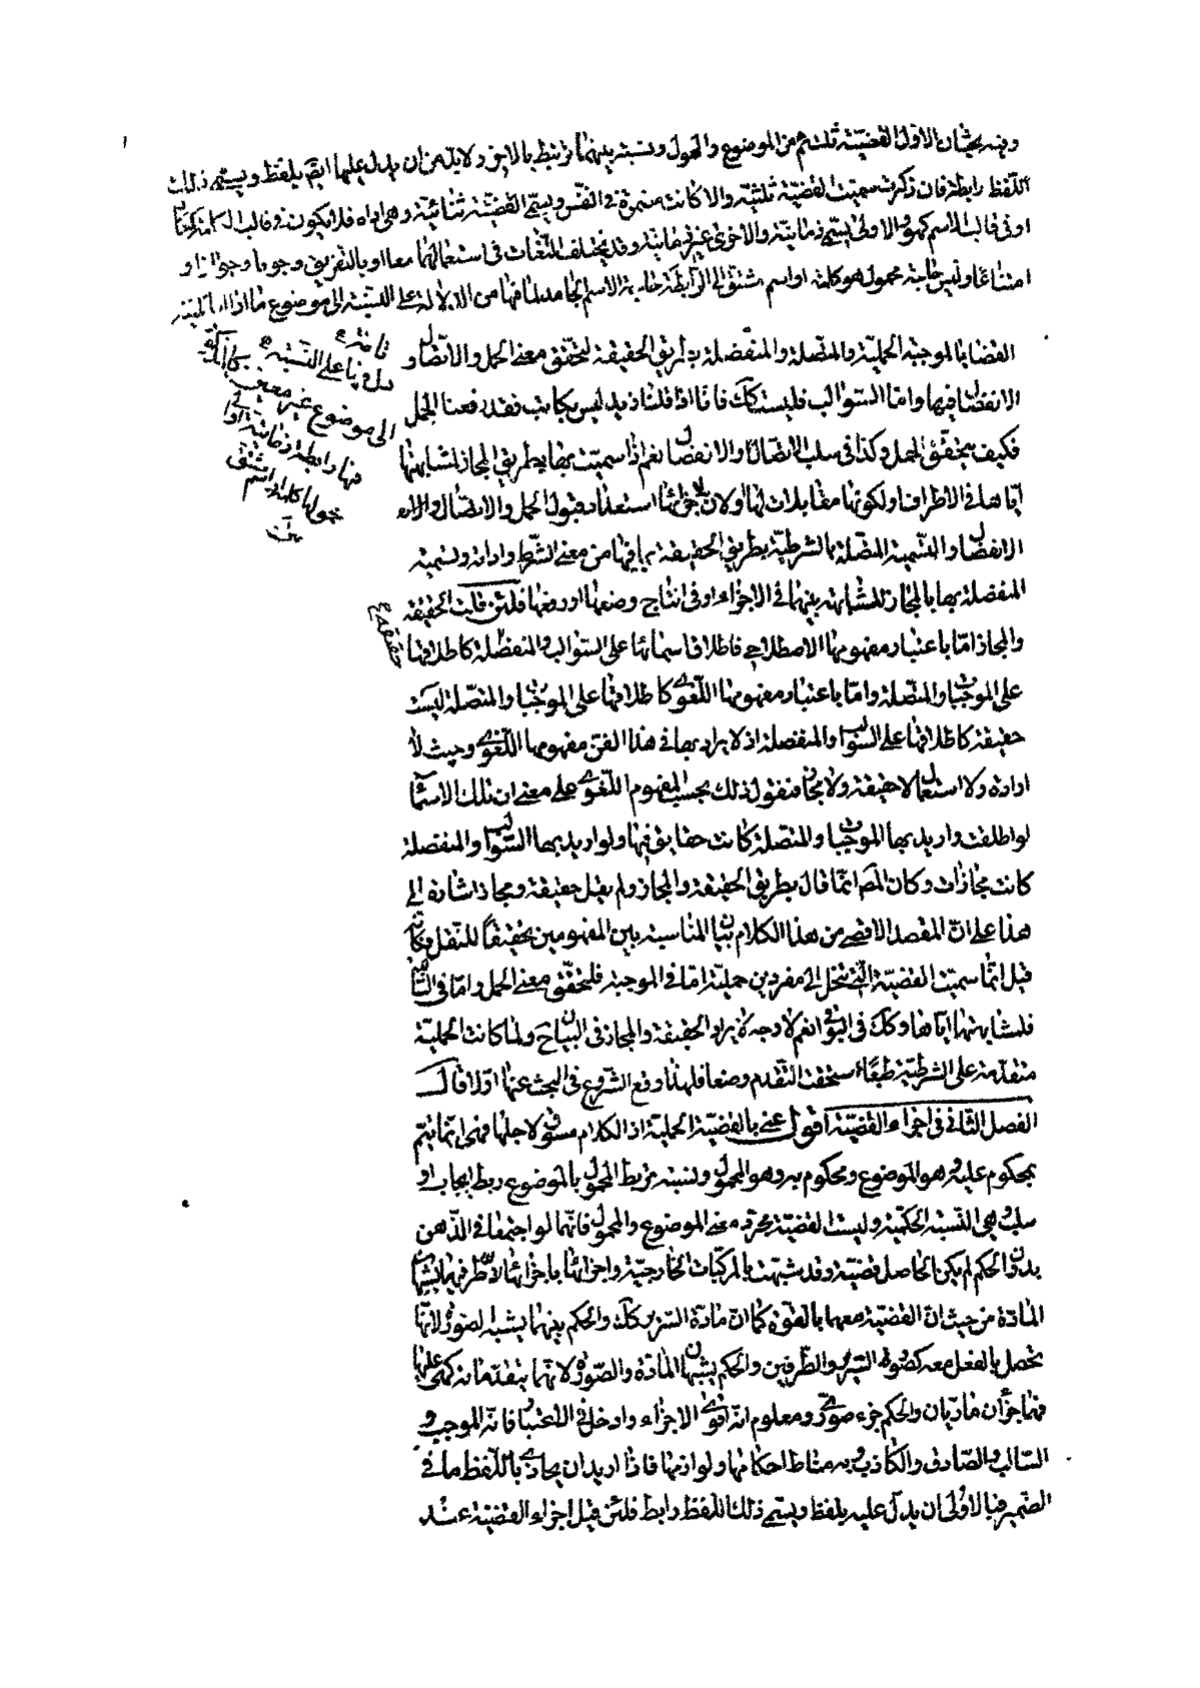 ١
وفيه بحثان الاول القضية تلتئم من الموضوع والمحمول ونسبة بينهما يرتبط بالاخر ولا بد من ان يدل عليها ايض بلفظ ويسمى ذلك
اللفظ رابطة فان ذكرت سميت القضية ثلثية والا كانت مضمرة في النفس ويسمى القضية ثنائية وهي اداة فلا يكون في قالب الكلمة ككان
او في قالب الاسم كهو والاولى يسمى زمانية والاخرى غير زمانية وقد يختلف اللغات في استعمالهما معا او بالتفريق وجوبا وجوازا و
امتناعا وليس حاجة محمول هو كلمة او اسم مشتق الى الرابطة حاجة الاسم الجامد لما فيها من الدلالة على النسبة الى موضوع ما اذا
القضايا الموجبة الحملية والمتصلة والمنفصلة بطريق الحقيقة لتحقق معنى الحمل والاتصال و
الانفصال فيها واما السوالب فليست كك فانا اذا قلنا زيد ليس بكاتب فقد رفعنا الحمل
فكيف يتحقق الحمل وكذا في سلب الاتصال والانفصال نعم اذا سميت بها بطريق المجاز لمشابهتها
اياها في الاطراف او لكونها مقابلات لها ولان لاجزائها استعداد قبول الحمل والاتصال و
الانفصال والتسمية المتصلة بالشرطية بطريق الحقيقة بما فيها من معنى الشرط واداته وتسمية
المنفصلة بها بالمجاز للمشابهة بينهما في الاجزاء او في انتاج وضعها او رفعها فلئن قلت الحقيقة
والمجاز اما باعتبار مفهومها الاصطلاحي فاطلاق اسمائها على السوالب والمنفصلة كاطلاقها
على الموجبات والمتصلة واما باعتبار مفهومها اللغوي كاطلاقها على الموجبات والمتصلة ليست
حقيقة كاطلاقها على السوالب والمنفصلة اذ لا يراد بها في هذا الفن مفهومها اللغوي وحيث لا
ارادة ولا استعمال لا حقيقة ولا مجاز فنقول ذلك بحسب المفهوم اللغوي على معنى ان تلك الاسماء
لو اطلقت واريد بها الموجبات والمتصلة كانت حقايق فيها ولو اريد بها السوالب والمنفصلة
كانت مجازات وكان المص انما قال بطريق الحقيقة والمجاز ولم يقل حقيقة ومجاز اشارة الى
هذا على ان المقصد الاقصى من هذا الكلام بيان المناسبة بين المفهومين تحقيقا للنقل فكانه
قيل انما سميت القضية التي تنحل الى مفردين حملية اما في الموجبة فلتحقق معنى الحمل واما في السالبة
فلمشابهتها اياها وكك في البواقي نعم لا وجه لايراد الحقيقة والمجاز في البيان ح ولما كانت الحملية
متقدمة على الشرطية طبعا استحقت التقدم وضعا فلهذا وقع الشروع في البحث عنها اولا قال
الفصل الثاني في اجزاء القضية اقول عنى بالقضية الحملية اذ الكلام مسوق لاجلها فهي انما يتم
بمحكوم عليه وهو الموضوع ومحكوم به وهو المحمول ونسبة يربط المحمول بالموضوع ربط ايجاب او
سلب وهي النسبة الحكمية وليست القضية مجرد معنى الموضوع والمحمول فانهما لو اجتمعا في الذهن
بدون الحكم لم يكن الحاصل قضية وقد شبهت بالمركبات الخارجية واجزائها باجزائها فالطرفان يشبهان
المادة من حيث ان القضية معهما بالقوة كما ان مادة السرير كك والحكم بينهما يشبه الصورة لانها
تحصل بالفعل معه كصورة السرير والطرفين والحكم يشبهان المادة والصورة لانهما يتقدمانه كهي عليها
فهما جزآن ماديان والحكم جزء صوري ومعلوم انه اقوى الاجزاء وادخل في الاعتبار فانه الموجب و
السالب والصادق والكاذب وبه مناط احكامها ولوازمها فاذا اريد ان يحاذى باللفظ ما في
الضمير فبالاولى ان يدل عليه بلفظ ويسمى ذلك اللفظ رابط فلئن قيل اجزاء القضية عند
دل
على النسبة
الى موضوع غير معين
منها رابطة زمانية او
محمولها كلمة او اسم مشتق
متن